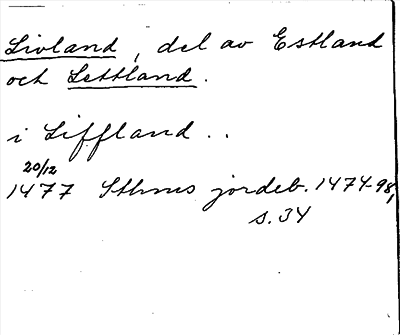 Livland, del av Estland
och Lettland.
i Liffland..
20/12
1477 Sthms jordeb. 1474-98,
s. 34